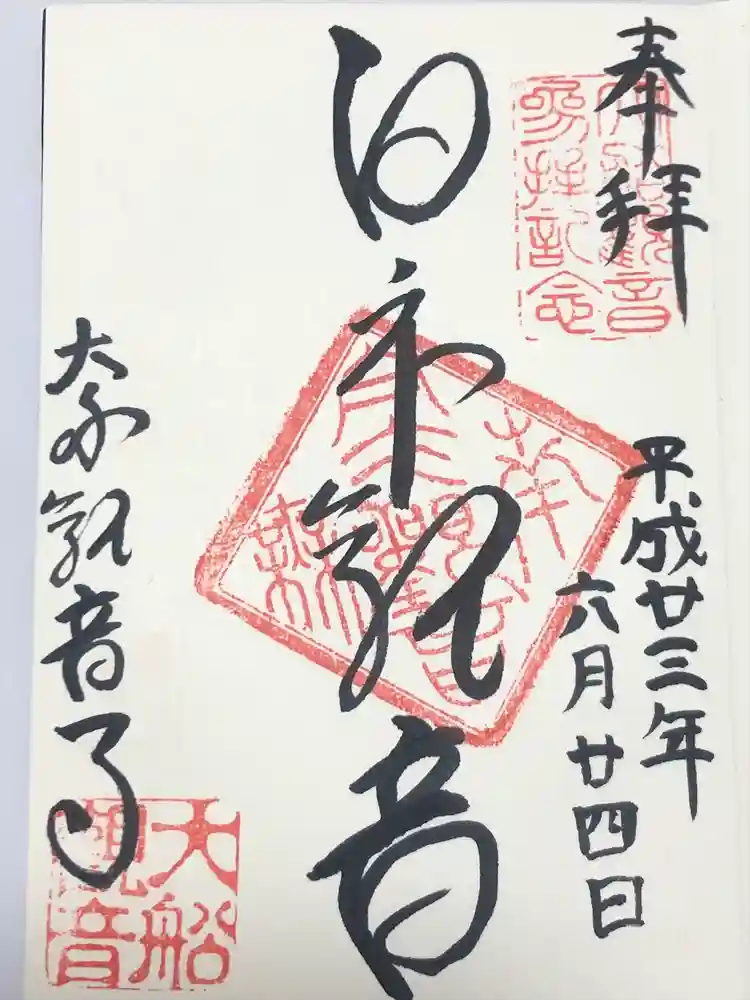 奉拝
参拝記念
平成廿三年
六月廿四日
白衣観音
大船観音寺
大船
観音